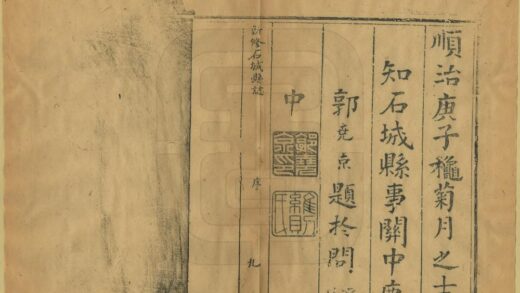 順治庚子穐菊月之十
知石城縣事關中
郭堯京題於問
中
新修石城縣誌 序 九